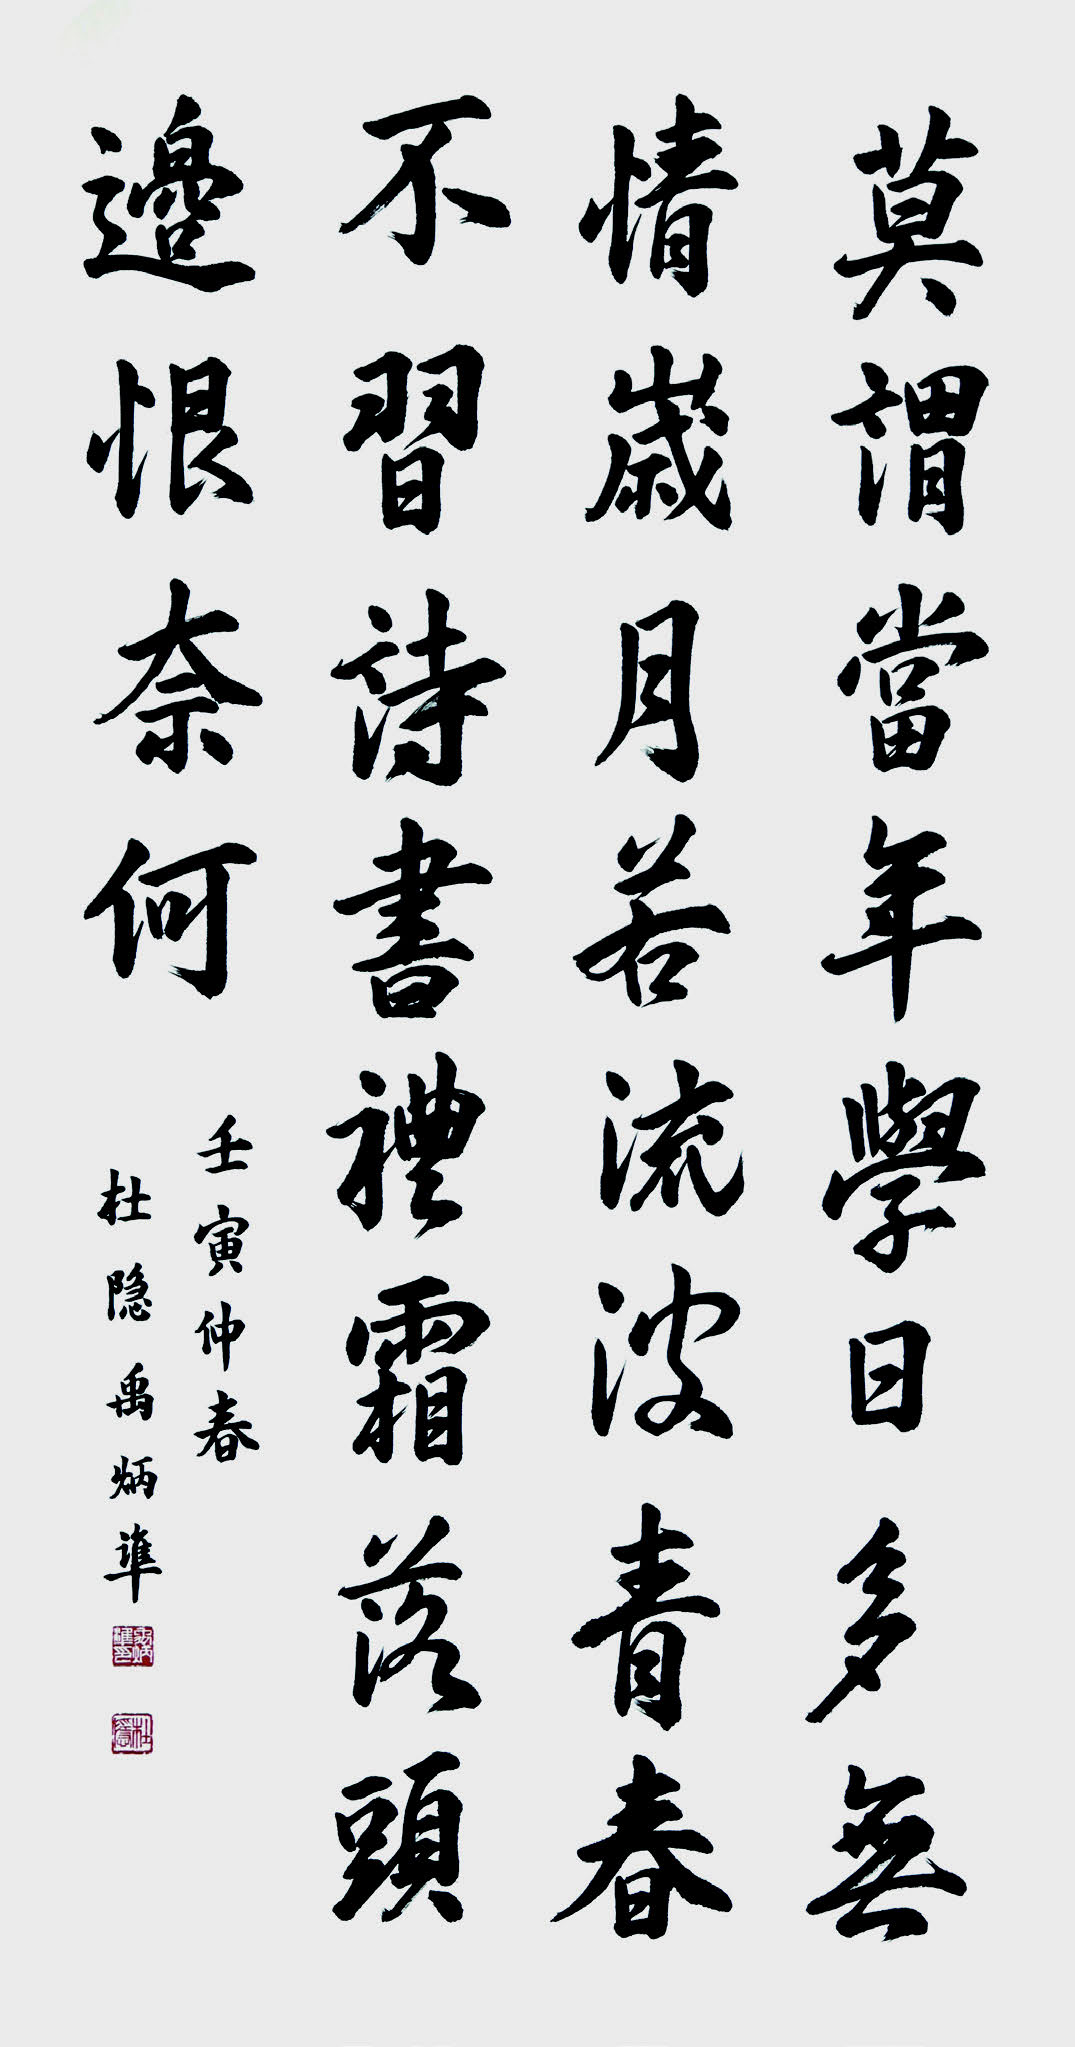 莫謂當年學日多無
情歲月若流波青春
不習詩書禮霜落頭
邊恨奈何
壬寅仲春
杜隐禹炳準